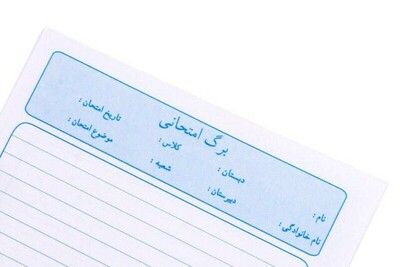 برگ امتحانی
نام : دبستان : کلاس : تاریخ امتحان :
نام خانوادگی : دبیرستان : شعبه : موضوع امتحان :